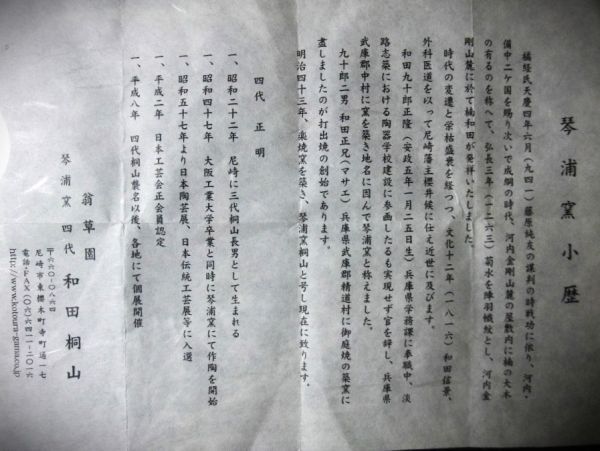 琴浦窯小歴
橘経氏天慶四年六月(九四一)藤原純友の謀判の時戦功に依り、河内・
備中二ケ国を賜り次いで成綱の時代、河内金剛山麓の屋敷内に楠の大木
の有るのを称へて、弘長三年(一二六三)菊水を陣羽織紋とし、河内金
剛山麓に於て楠和田が発祥いたしました。
時代の変遷と栄枯盛衰を経つつ、文化十二年(一八一六)和田信景、
外科医道を以って尼崎藩主櫻井候に仕え近世に及びます。
和田九十郎正隆(安政五年一月二五日生)兵庫県学務課に奉職中、淡
路志築における陶器学校建設に参画したるも実現せず官を辞し、兵庫県
武庫郡中村に窯を築き地名に因んで琴浦窯と称えました。
九十郎二男 和田正兄(マサエ)兵庫県武庫郡精道村に御庭焼の築窯に
盡しましたのが打出焼の創始であります。
明治四十三年、楽焼窯を築き、琴浦窯桐山と号し現在に致ります。
四代 正明
一、昭和二十二年 尼崎に三代桐山長男として生まれる
一、昭和四十七年 大阪工業大学卒業と同時に琴浦窯にて作陶を開始
一、昭和五十七年より日本陶芸展、日本伝統工芸展等に入選
一、平成二年 日本工芸会正会員認定
一、平成八年 四代桐山襲名以後、各地にて個展開催
翁草園
琴浦窯 四代 和田桐山
〒六六〇-〇八六四
尼崎市東櫻木町寺町通一七
電話・FAX(〇六)六四一一-二〇一六
http://www.kotoura-gama.co.jp